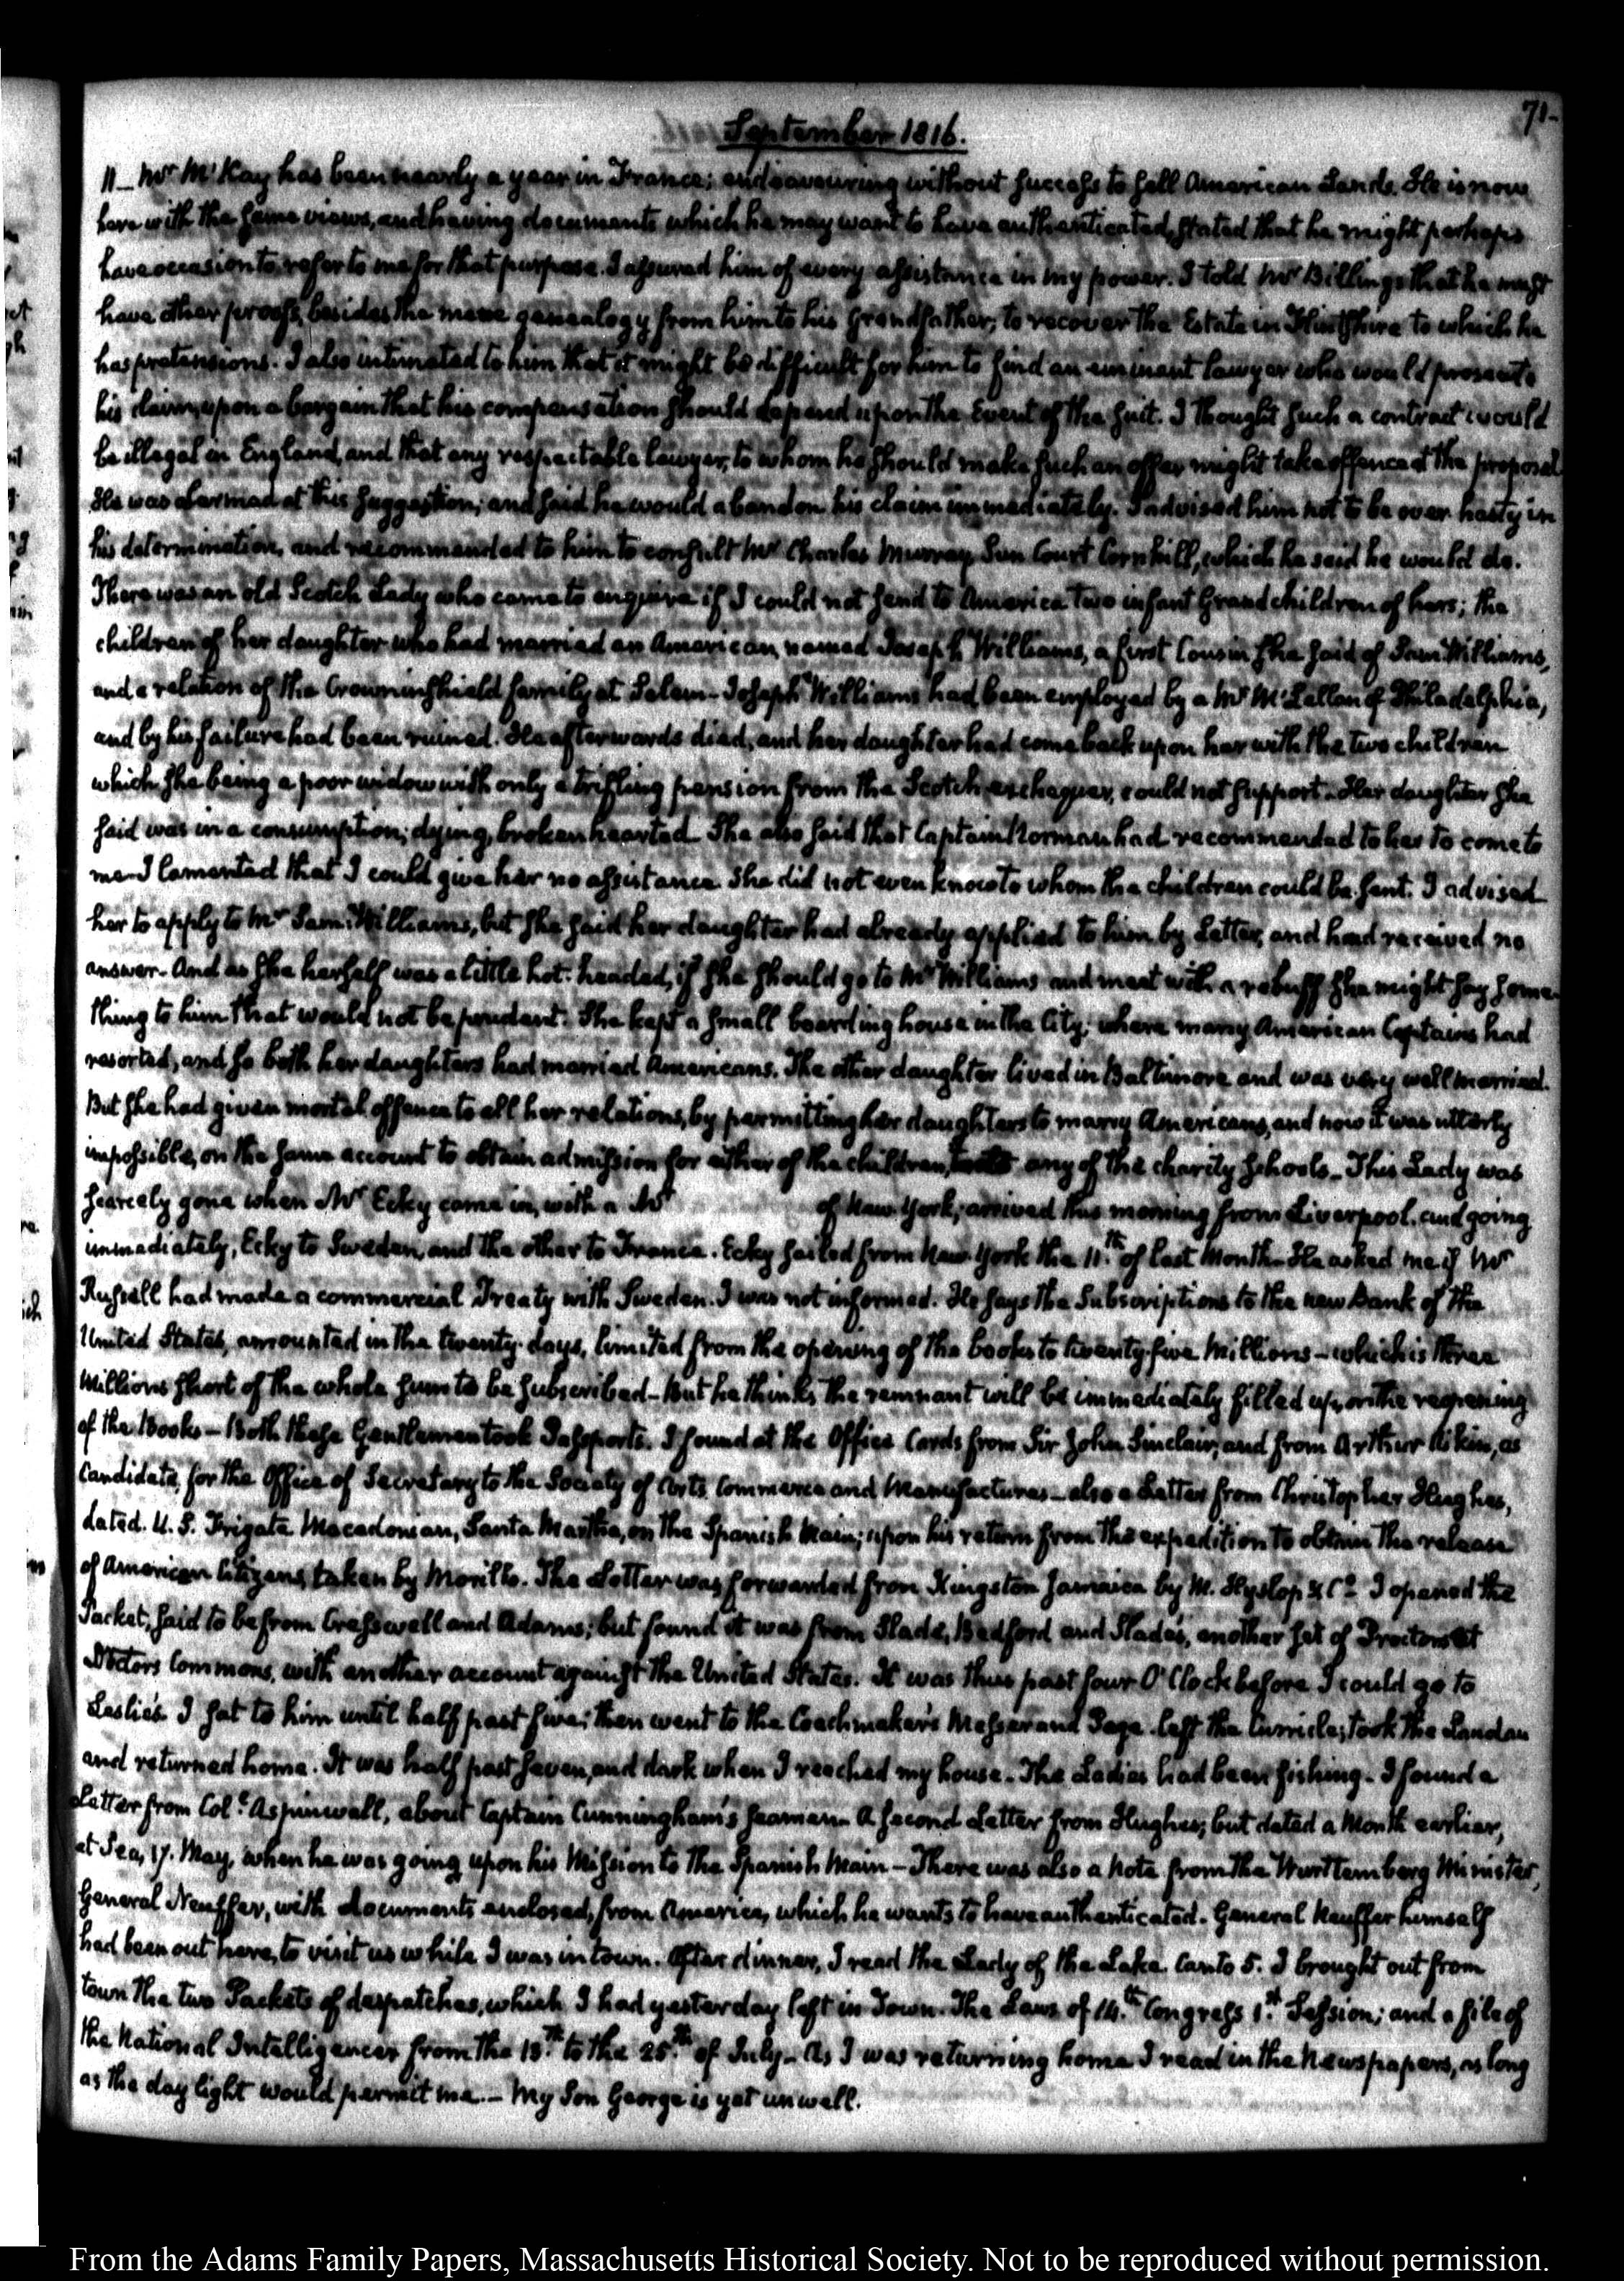 71-
September 1816.
11_ Mr. McKay has been nearly a year in France; endeavouring without success to sell American Lands. He is now
here with the same views, and having documents which he may want to have authenticated, stated that he might perhaps
have occasion to refer to me for that purpose. I assured him of every assistance in my power. I told Mr. Billings that he must
have other proofs, besides the mere genealogy from him to his Grandfather, to recover the Estate in Flintshire to which he
has pretensions. I also intimated to him that it might be difficult for him to find an eminent lawyer who would prosecute
his claim, upon a bargain that his compensation should depend upon the Event of the suit. I thought such a contract would
be illegal in England, and that any respectable lawyer, to whom he should make such an offer might take offence at the proposal
He was alarmed at this suggestion; and said he would abandon his claim immediately. I advised him not to be over hasty in
his determination, and recommended to him to consult Mr. Charles Murray, Sun Court Cornhill, which he said he would do.
There was an old Scotch Lady who came to enquire if I could not send to America two infant Grandchildren of hers; the
children of her daughter who had married an American, named Joseph Williams, a first Cousin she said of Sam Williams,
and a relation of the Crowninshield family at Salem- Joseph Williams had been employed by a Mr. McLellan of Philadelphia,
and by his failure had been ruined. He afterwards died, and her daughter had come back upon her with the two children
which she being a poor widow with only a trifling pension from the Scotch exchequer, could not support. Her daughter she
said was in a consumption; dying, broken hearted- She also said that Captain Norman had recommended to her to come to
me- I lamented that I could give her no assistance. She did not even know to whom the children could be sent. I advised
her to apply to Mr. Sam: Williams, but she said her daughter had already applied to him by Letter, and had received no
answer- And as she herself was a little hot-headed, if she should go to Mr. Williams and meet with a rebuff she might say some-
thing to him that would not be prudent. She kept a small boarding house in the City; where many American Captains had
resorted, and so both her daughters had married Americans. The other daughter lived in Baltimore and was very well married.
But she had given mortal offence to all her relations, by permitting her daughters to marry Americans, and now it was utterly
impossible, on the same account to obtain admission for either of the children, any of the charity schools_ This Lady was
scarcely gone when Mr. Ecky came in, with a Mr. of New York; arrived this morning from Liverpool, and going
immediately, Ecky to Sweden, and the other to France. Ecky sailed from New York the 11.th of last Month- He asked me if Mr.
Russell had made a commercial Treaty with Sweden. I was not informed. He says the Subscriptions to the new Bank of the
United States, amounted in the twenty days, limited from the opening of the books to twenty-five Millions- which is three
Millions short of the whole sum to be subscribed- But he thinks the remnant will be immediately filled up, on the reopening
of the Books- Both these Gentlemen took Passports. I found at the Office Cards from Sir John Sinclair, and from Arthur Aikin, as
Candidate, for the Office of Secretary to the Society of Arts, Commerce and Manufactures- also a Letter from Christopher Hughes,
dated. U.S. Frigate Macedonian, Santa Martha, on the Spanish Main; upon his return from the expedition to obtain the release
of American Citizens, taken by Morillo. The Letter was forwarded from Kingston Jamaica by M. Hyslop & Co. I opened the
Packet, said to be from Cresswell and Adams; but found it was from Slade, Bedford and Slades, another set of Proctors at
Doctors Commons, with another account against the United States. It was thus past four O'Clock before I could go to
Leslie's. I sat to him until half past five; then went to the Coachmaker's Messer and Page. left the Curricle; took the Landau
and returned home. It was half past seven, and dark when I reached my house_ The Ladies had been fishing- I found a
Letter from Col. Aspinwall, about Captain Cunningham's seamen- A second Letter from Hughes; but dated a Month earlier,
at Sea, 17. May, when he was going upon his Mission to the Spanish Main- There was also a Note from the Wurttemberg Minister,
General Neuffer, with documents enclosed, from America, which he wants to have authenticated. General Neuffer himself
had been out here, to visit us while I was in town. After dinner, I read the Lady of the Lake. Canto 5. I brought out from
town the two Packets of despatches, which I had yesterday left in Town. The Laws of 14.th Congress 1.st Session; and a file of
the National Intelligencer from the 13.th to the 25.th of July- As I was returning home I read in the Newspapers, as long
as the day light would permit me.- My Son George is yet unwell.
From the Adams Family Papers, Massachusetts Historical Society. Not to be reproduced without permission.